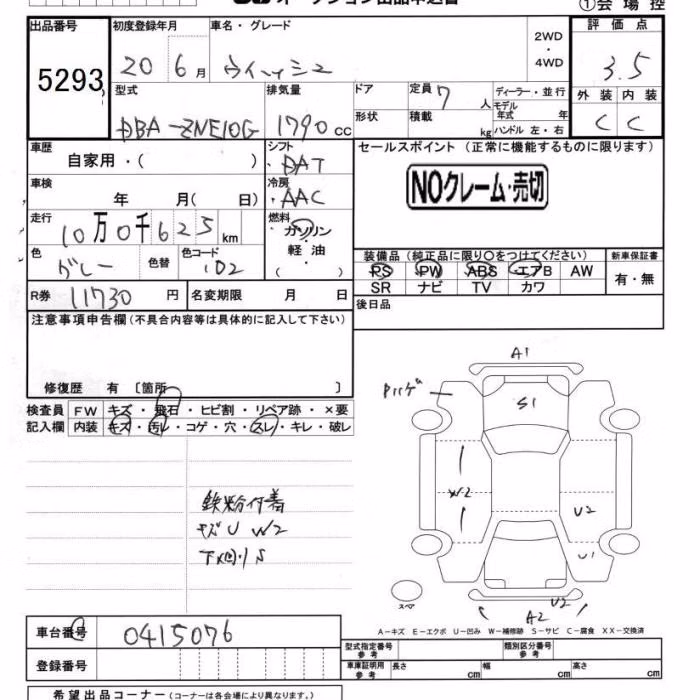 ①会場控
出品番号
5293
初度登録年月
20 6月
車名・グレード
ウィッシュ
2WD
・
4WD
評価点
3.5
外装 内装
C C
型式
DBA-ZNE10G
排気量
1790cc
ドア
形状
定員 7人
積載 kg
ディーラー・並行
モデル年式 年
ハンドル 左・右
車歴
自家用・( )
シフト
DAT
セールスポイント (正常に機能するものに限ります)
NOクレーム・売切
車検
年 月( 日)
冷房
AAC
走行
10万0千625km
燃料
ガソリン
・
軽油
( )
色
グレー
色替
色コード
1D2
装備品(純正品に限り○をつけてください)
新車保証書
PS PW ABS エアB AW
有・無
SR ナビ TV カワ
R券 11730円
名変期限 月 日
後日品
注意事項申告欄(不具合内容等は具体的に記入して下さい)
修復歴 有 〔箇所 〕
検査員 FW キズ・飛石・ヒビ割・リペア跡・×要
記入欄 内装 キズ・汚レ・コゲ・穴・スレ・キレ・破レ
鉄粉付着
キズU W2
下廻りS
A1
S1
W2
U2
U1
U2
A2
スペア
A－キズ E－エクボ U－凹み W－補修跡 S－サビ C－腐食 XX－交換済
車台番号 0415076
登録番号
型式指定番号 参考
類別区分番号 参考
車庫証明用 参考
長さ cm
幅 cm
高さ cm
希望出品コーナー(コーナーは各会場により異なります。)